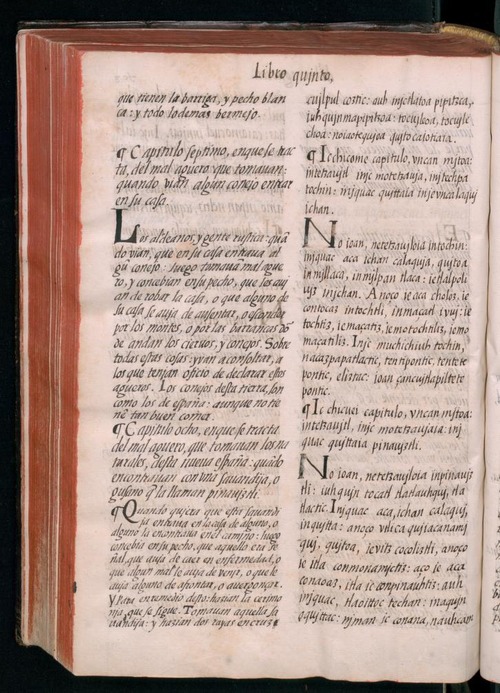 Libro quinto,
que tienen la barriga, y pecho blan
ca: y todo lo demas bermejo.
¶ Capitulo septimo, en que se trac
ta, del mal aguero que tomauan:
quando vian algun conejo entrar
en su casa.
Los aldeanos, y gente rustica: quā
do vian, que en su casa entraua al
gū conejo: luego tomauā mal ague
ro, y concebian en su pecho, que los auj
an de robar la casa, o que alguno de
su casa se auja de ausentar, o esconder
por los montes, o por las barrancas dō
de andan los cieruos, y conejos. Sobre
todas estas cosas: yvan a consultar, a
los que tenian oficio de declarar estos
agueros. Los conejos desta tierra, son
como los de españa: aunque no tie
nē tan buen comer.
¶ Capitulo ocho, en que se tracta
del mal aguero, que tomauan los na
turales, desta nueua españa: quādo
encontrauan con vna sauandija, o
gusano q̄ la llaman pinauiztli.
¶ Quando quiera que esta sauandi
ja entraua en la casa de alguno, o
alguno la encontraua en el camino: luego
concebia en su pecho, que aquello era se
ñal, que auja de caer en enfermedad, o
que algun mal le auja de venir, o que le
auja alguno de afrontar, o avergonçar.
Y para en remedio desto: hazian la cerimo
nia, que se sigue. Tomauan aquella sa
uandija: y hazian dos rayas en cruz,
cujlpul coztic: auh injc tlatoa pipitzca,
iuhquin mapipitzoa: tocujleoa, tocujle
choa: noiaotequjoa qujtocatoiaia.
¶ Ic chicome capitulo, vncan mjtoa:
in tetzaujtl inje motetzaujaia, in jtechpa
tochin: injquac qujttaia in je vncalaquj
ichan.
No ioan, netetzaujloia in tochin:
injquac aca ichan calaquja, qujtoa
in mjllaca, in mjlpan tlaca: ie tlalpoli
viz injchan. Anoço ie aca choloz, ie
contocaz in tochtli, in maçatl ivuj: ie
tochtiz, ie maçatiz, ie motochtiliz, ie mo
maçatiliz. Injc muchichiuh tochin,
nacazpapatlactic, tentipontic, tentete
pontic, eliztac: ioan çan cujtlapiltete
pontic.
¶ Ic chicuei capitulo, vncan mjtoa:
in tetzaujtl, inje motetzaujaia: inj
quac qujttaia pinaujztli.
No ioan, netetzaujloia in pinaujz
tli: iuhqujn tocatl tlatlauhquj, tla
tlactic. Injquac aca, ichan calacquj,
in qujtta: anoço vtlica qujiacanamj
quj, qujtoa, ievitz cocoliztli, anoço
ie itla connonamjctiz: aço ie aca
conaoaz, itla ic conpinauhtiz: auh
injquac, tlaoittoc techan: in aqujn
oqujttac: njman ic conana, nauhcam